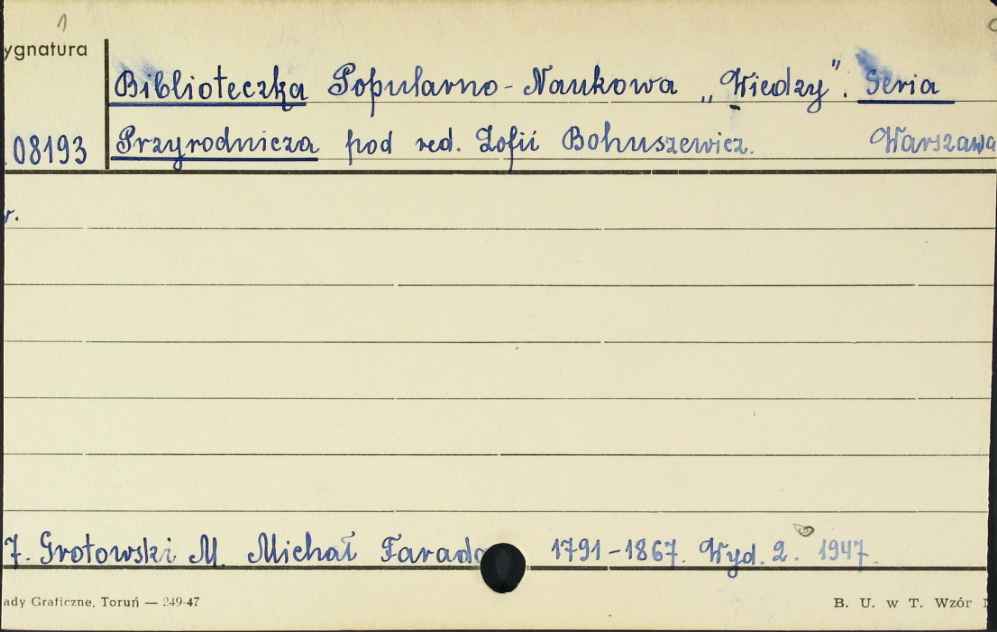 1
ygnatura
Biblioteczka Popularno-Naukowa „Wiedzy". Seria
08193 Przyrodnicza pod red. Zofii Bohuszewicz. Warszawa
r.
7. Grotowski M. Michał Farada 1791-1867. Wyd. 2. 1947.
ady Graficzne, Toruń — 249-47 B. U. w T. Wzór